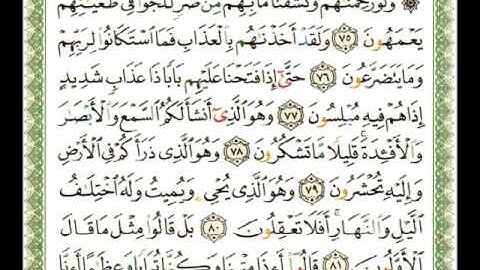 وَلَوْ رَحِمْنَٰهُمْ وَكَشَفْنَا مَا بِهِم مِّن ضُرٍّ لَّلَجُّوا۟ فِى طُغْيَٰنِهِمْ
يَعْمَهُونَ ﴿٧٥﴾ وَلَقَدْ أَخَذْنَٰهُم بِٱلْعَذَابِ فَمَا ٱسْتَكَانُوا۟ لِرَبِّهِمْ
وَمَا يَتَضَرَّعُونَ ﴿٧٦﴾ حَتَّىٰٓ إِذَا فَتَحْنَا عَلَيْهِم بَابًا ذَا عَذَابٍ شَدِيدٍ
إِذَا هُمْ فِيهِ مُبْلِسُونَ ﴿٧٧﴾ وَهُوَ ٱلَّذِىٓ أَنشَأَ لَكُمُ ٱلسَّمْعَ وَٱلْأَبْصَٰرَ
وَٱلْأَفْـِٔدَةَ ۚ قَلِيلًا مَّا تَشْكُرُونَ ﴿٧٨﴾ وَهُوَ ٱلَّذِى ذَرَأَكُمْ فِى ٱلْأَرْضِ
وَإِلَيْهِ تُحْشَرُونَ ﴿٧٩﴾ وَهُوَ ٱلَّذِى يُحْىِۦ وَيُمِيتُ وَلَهُ ٱخْتِلَٰفُ
ٱلَّيْلِ وَٱلنَّهَارِ ۚ أَفَلَا تَعْقِلُونَ ﴿٨٠﴾ بَلْ قَالُوا۟ مِثْلَ مَا قَالَ
ٱلْأَوَّلُونَ ﴿٨١﴾ قَالُوٓا۟ أَءِذَا مِتْنَا وَكُنَّا تُرَابًا وَعِظَٰمًا أَءِنَّا